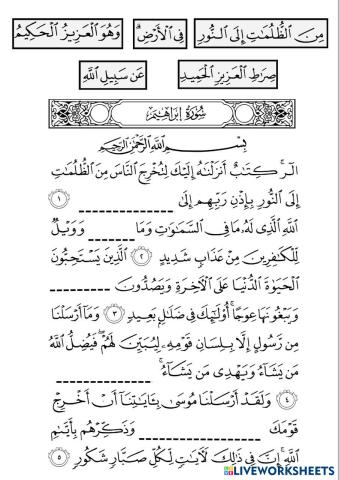 مِنَ ٱلظُّلُمَـٰتِ إِلَى ٱلنُّورِ
فِي ٱلْأَرْضِ ۗ
وَهُوَ ٱلْعَزِيزُ ٱلْحَكِيمُ
صِرَٰطِ ٱلْعَزِيزِ ٱلْحَمِيدِ
عَن سَبِيلِ ٱللَّهِ
سُورَةُ إِبْرَاهِيمَ
بِسْمِ ٱللَّهِ ٱلرَّحْمَـٰنِ ٱلرَّحِيمِ
الٓر ۚ كِتَـٰبٌ أَنزَلْنَـٰهُ إِلَيْكَ لِتُخْرِجَ ٱلنَّاسَ مِنَ ٱلظُّلُمَـٰتِ
إِلَى ٱلنُّورِ بِإِذْنِ رَبِّهِمْ إِلَىٰ ____________ ١
ٱللَّهِ ٱلَّذِى لَهُۥ مَا فِى ٱلسَّمَـٰوَٰتِ وَمَا ________ وَوَيْلٌ
لِّلْكَـٰفِرِينَ مِنْ عَذَابٍ شَدِيدٍ ٢ ٱلَّذِينَ يَسْتَحِبُّونَ
ٱلْحَيَوٰةَ ٱلدُّنْيَا عَلَى ٱلْـَٔاخِرَةِ وَيَصُدُّونَ __________
وَيَبْغُونَهَا عِوَجًا ۚ أُو۟لَـٰٓئِكَ فِى ضَلَـٰلٍۭ بَعِيدٍ ٣ وَمَآ أَرْسَلْنَا
مِن رَّسُولٍ إِلَّا بِلِسَانِ قَوْمِهِۦ لِيُبَيِّنَ لَهُمْ ۖ فَيُضِلُّ ٱللَّهُ
مَن يَشَآءُ وَيَهْدِى مَن يَشَآءُ ۚ ____________
٤ وَلَقَدْ أَرْسَلْنَا مُوسَىٰ بِـَٔايَـٰتِنَآ أَنْ أَخْرِجْ
قَوْمَكَ ____________ وَذَكِّرْهُم بِأَيَّىٰمِ
ٱللَّهِ ۚ إِنَّ فِى ذَٰلِكَ لَـَٔايَـٰتٍ لِّكُلِّ صَبَّارٍ شَكُورٍ ٥
LIVEWORKSHEETS